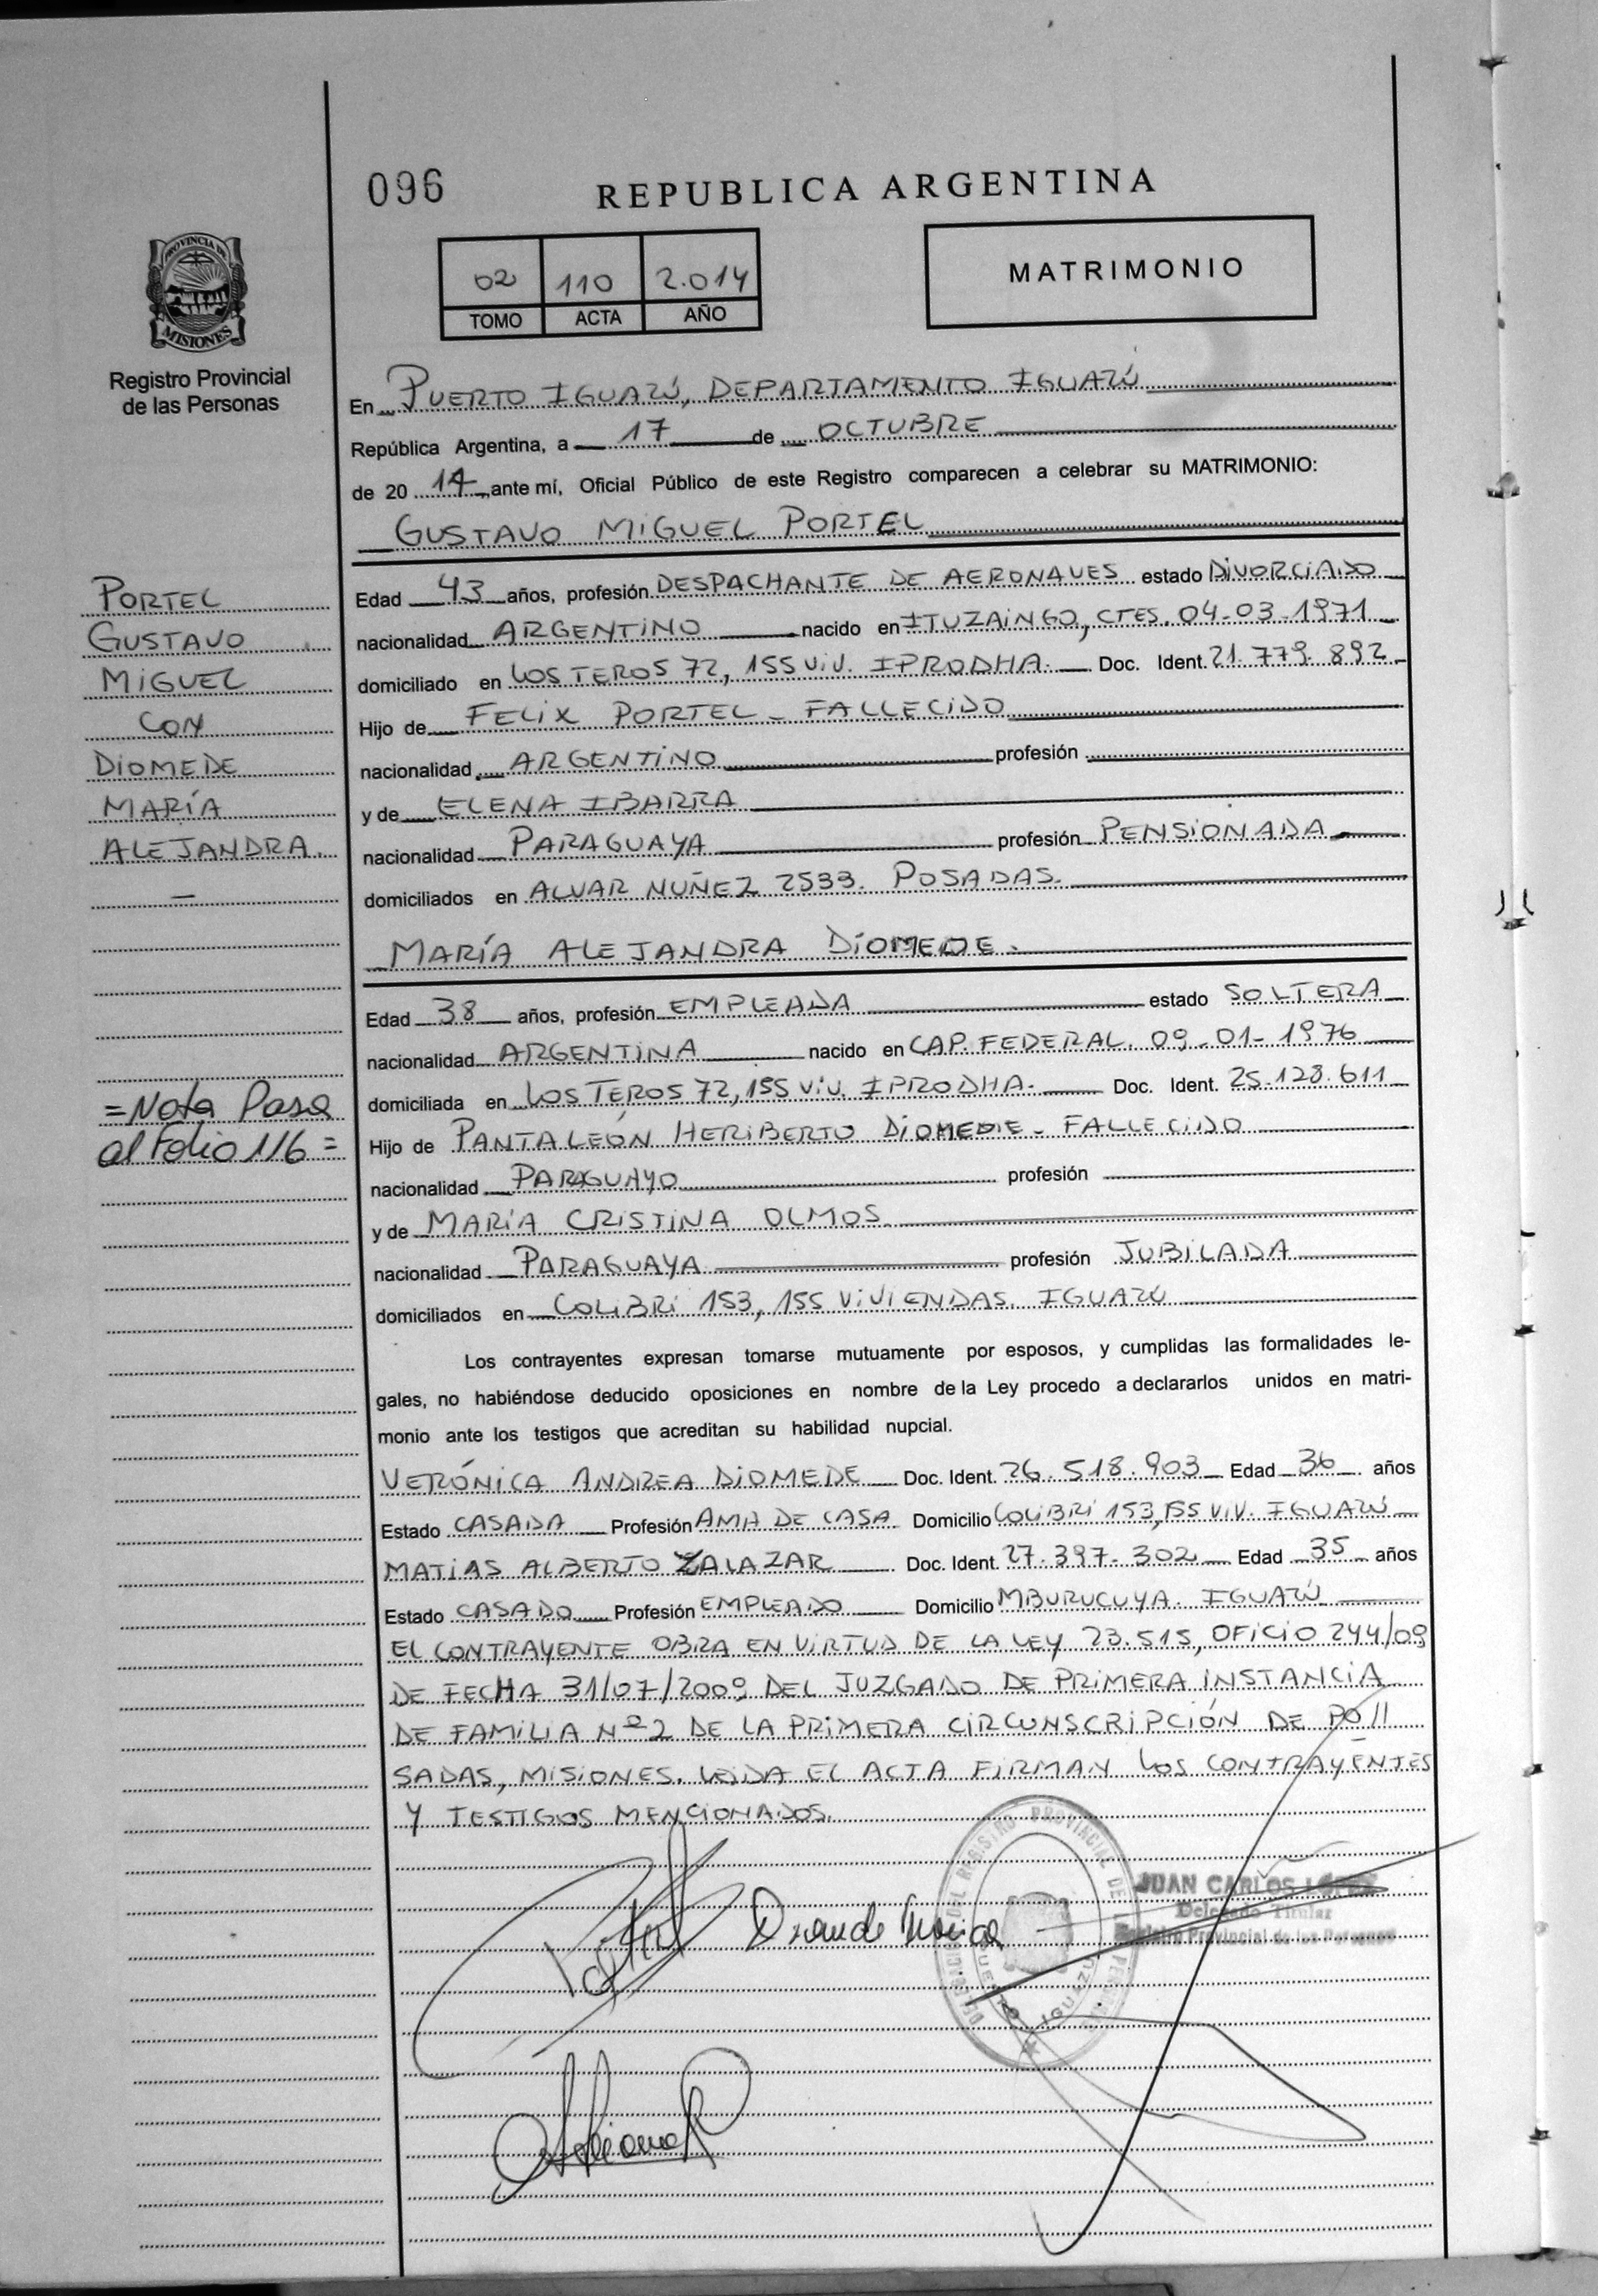 096
REPUBLICA ARGENTINA
PROVINCIA DE
MISIONES
Registro Provincial
de las Personas
02 110 2.014
TOMO ACTA AÑO
MATRIMONIO
En PUERTO IGUAZÚ, DEPARTAMENTO IGUAZÚ
República Argentina, a 17 de OCTUBRE
de 20 14 ante mí, Oficial Público de este Registro comparecen a celebrar su MATRIMONIO:
GUSTAVO MIGUEL PORTEL
Edad 43 años, profesión DESPACHANTE DE AERONAVES estado DIVORCIADO
nacionalidad ARGENTINO nacido en ITUZAINGO, CTES. 04-03-1971
domiciliado en LOS TEROS 72, 155 VIV. IPRODHA. Doc. Ident. 21.779.892
Hijo de FELIX PORTEL - FALLECIDO
nacionalidad ARGENTINO profesión
y de ELENA IBARRA
nacionalidad PARAGUAYA profesión PENSIONADA
domiciliados en ALVAR NUÑEZ 2533. POSADAS.
MARÍA ALEJANDRA DIOMEDE.
Edad 38 años, profesión EMPLEADA estado SOLTERA
nacionalidad ARGENTINA nacido en CAP. FEDERAL. 09-01-1976
domiciliada en LOS TEROS 72, 155 VIV. IPRODHA. Doc. Ident. 25.128.611
Hijo de PANTALEÓN HERIBERTO DIOMEDE - FALLECIDO
nacionalidad PARAGUAYO profesión
y de MARÍA CRISTINA OLMOS
nacionalidad PARAGUAYA profesión JUBILADA
domiciliados en COLIBRÍ 153, 155 VIVIENDAS. IGUAZÚ
Los contrayentes expresan tomarse mutuamente por esposos, y cumplidas las formalidades le-
gales, no habiéndose deducido oposiciones en nombre de la Ley procedo a declararlos unidos en matri-
monio ante los testigos que acreditan su habilidad nupcial.
VERÓNICA ANDREA DIOMEDE Doc. Ident. 26.518.903 Edad 36 años
Estado CASADA Profesión AMA DE CASA Domicilio COLIBRÍ 153, 155 VIV. IGUAZÚ
MATÍAS ALBERTO ZALAZAR Doc. Ident. 27.397.302 Edad 35 años
Estado CASADO Profesión EMPLEADO Domicilio MBURUCUYA. IGUAZÚ
EL CONTRAYENTE OBRA EN VIRTUD DE LA LEY 23.515, OFICIO 244/09
DE FECHA 31/07/2009 DEL JUZGADO DE PRIMERA INSTANCIA
DE FAMILIA Nº 2 DE LA PRIMERA CIRCUNSCRIPCIÓN DE PO//
SADAS, MISIONES. LEIDA EL ACTA FIRMAN LOS CONTRAYENTES
Y TESTIGOS MENCIONADOS.
PORTEL
GUSTAVO
MIGUEL
CON
DIOMEDE
MARÍA
ALEJANDRA.
=Nota Pasa
al Folio 116=
DEL REGISTRO PROVINCIAL DE
PUERTO IGUAZU
JUAN CARLOS LÓPEZ
Delegado Titular
Registro Provincial de las Personas